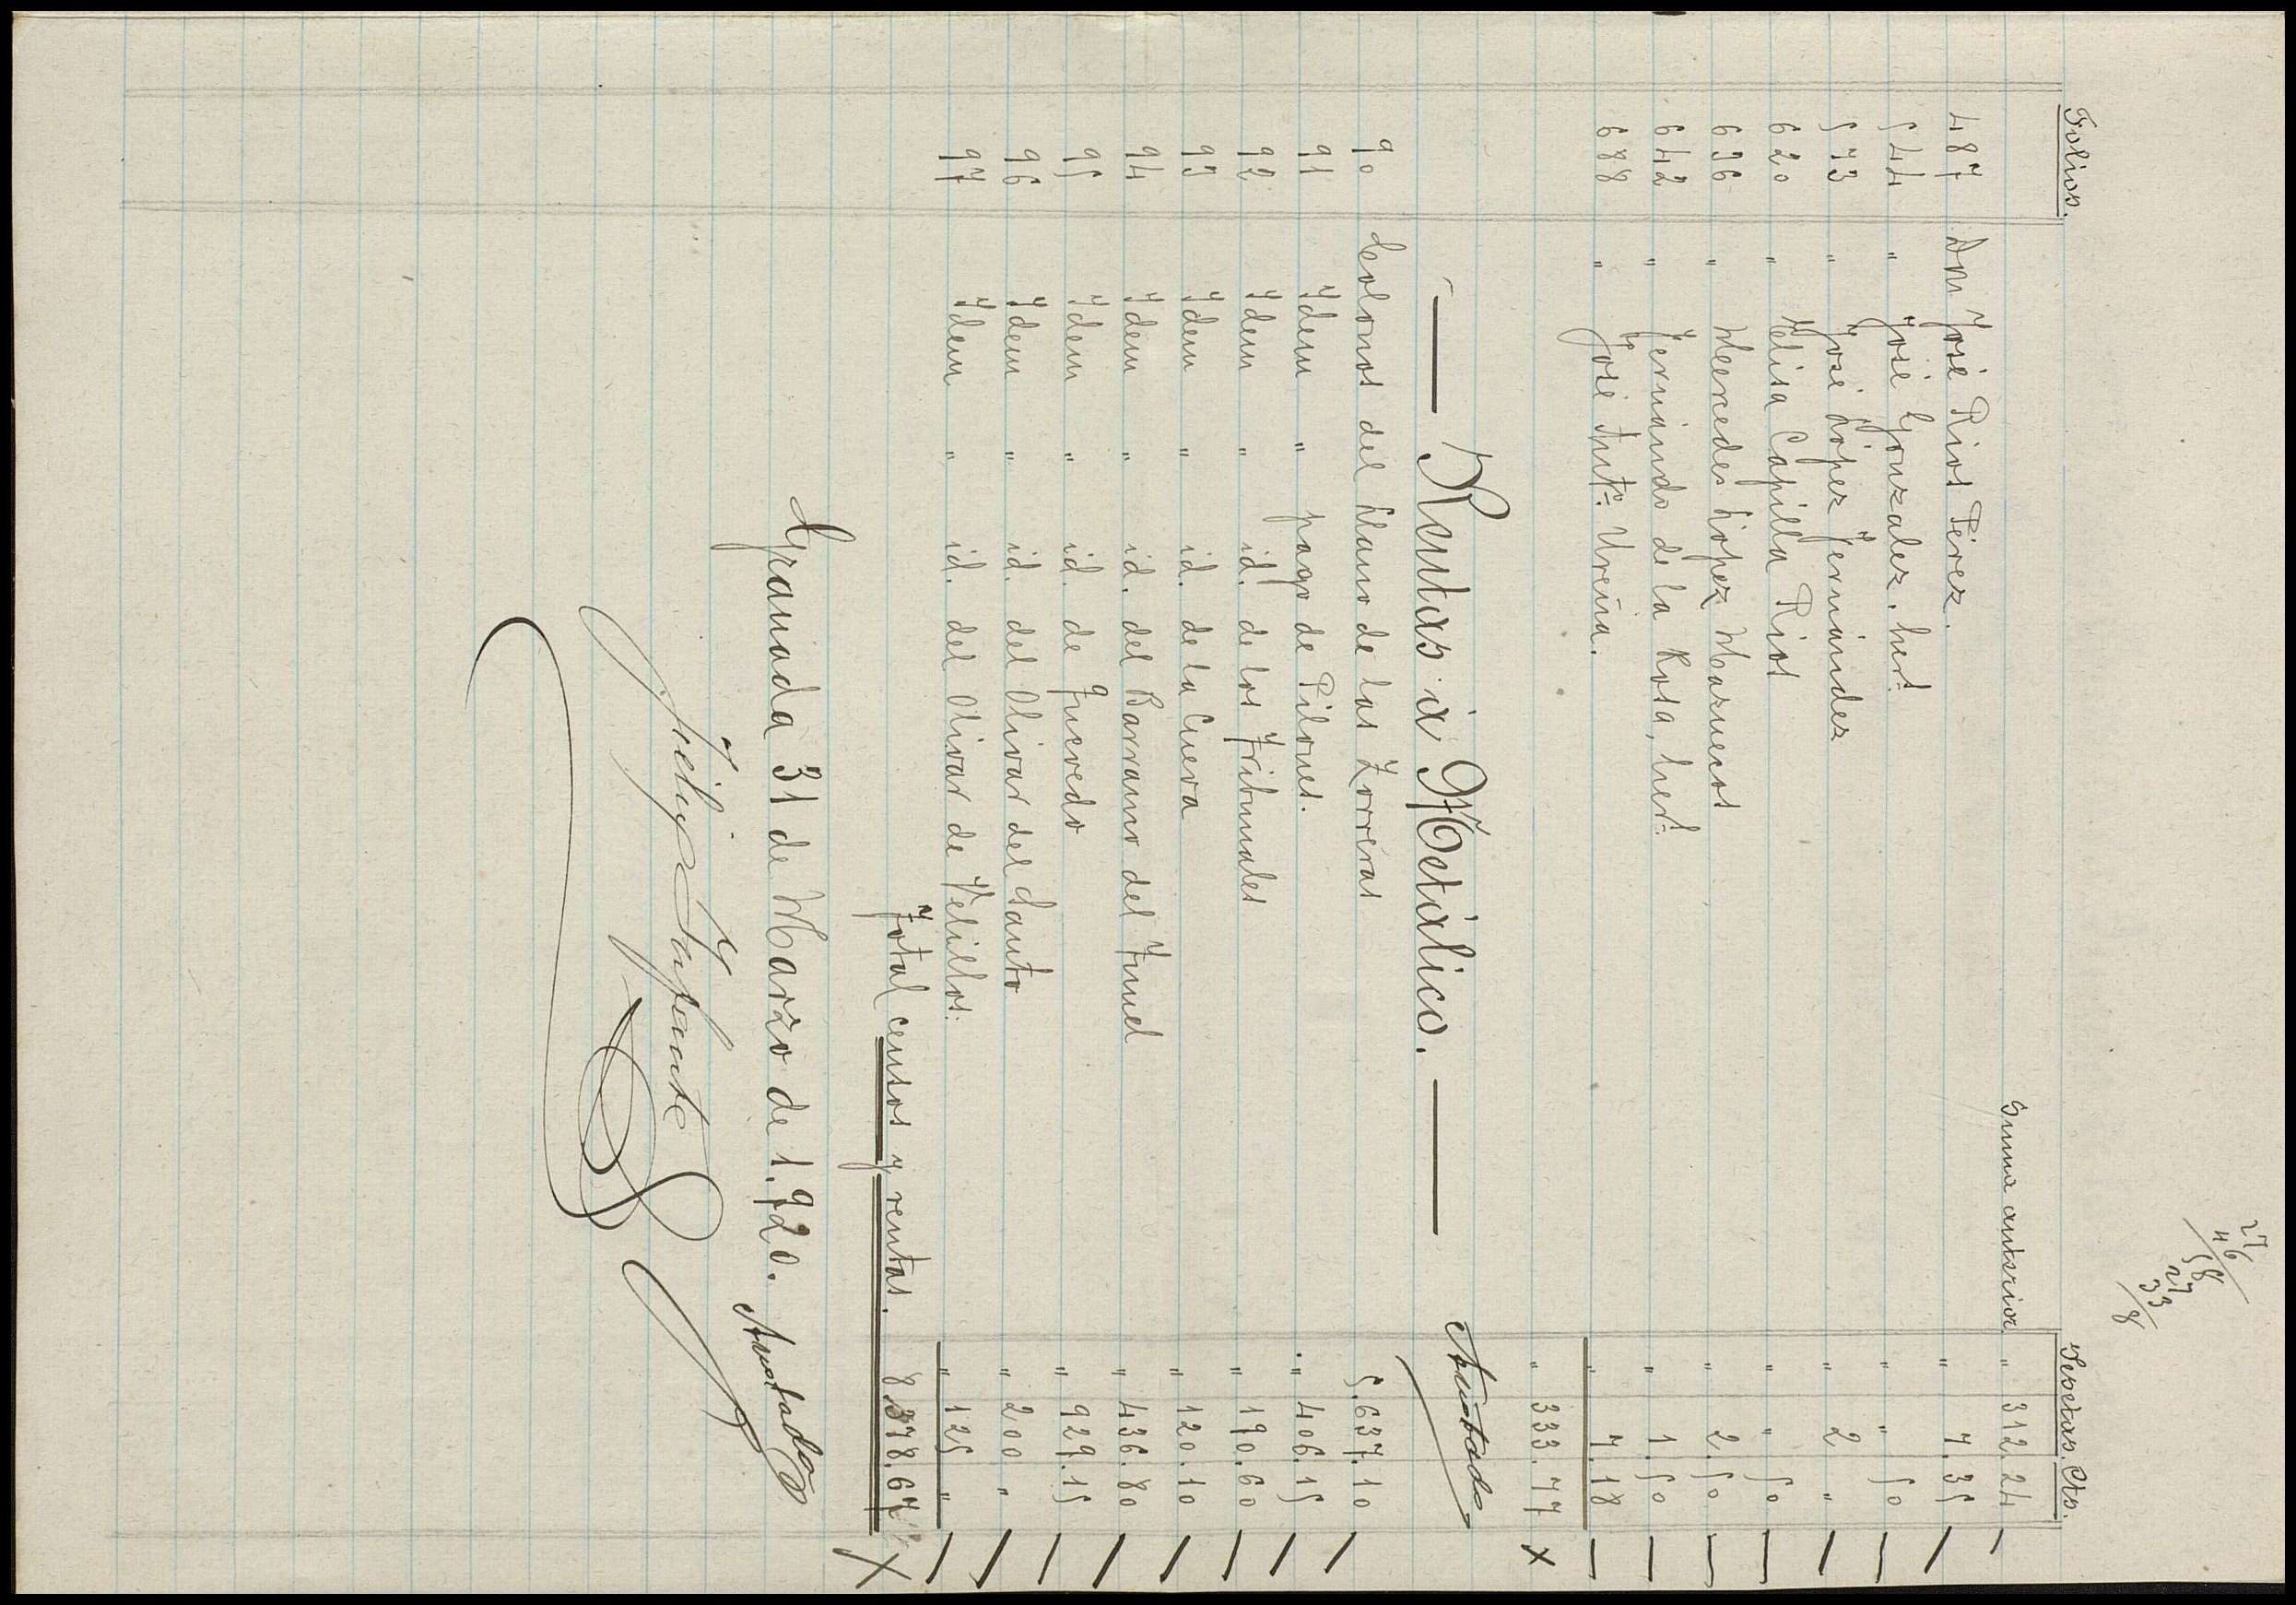 27
46
58
27
33
8
Folios. Pesetas. Cts.
Suma anterior " 312.24
487 Don José Rios Pérez. " 7.35
544 " José Gonzalez, hers. " " 50
573 " José López Fernández " 2 "
620 " Elisa Capilla Rios " " 50
636 " Mercedes López Mazuecos " 2.50
642 " Fernando de la Rosa, hers. " 1.50
688 " José Ureña. " 7.18
" 333.77 x
— Rentas á Metálico. — Anotado
90 Colonos del Llano de las Zorreras 5.637.10
91 Idem " pago de Pilones. " 406.15
92 Idem " id. de los Tribunales " 190.60
93 Idem " id. de la Cueva " 120.10
94 Idem " id. del Barranco del Tunel " 436.80
95 Idem " id. de Quevedo " 929.15
96 Idem " id. del Olivar del Santo " 200 "
97 Idem " id. del Olivar de Velillos. " 125 "
Total censos y rentas. 8.378.67 X
Granada 31 de Marzo de 1.920. Anotado
Felix Infante